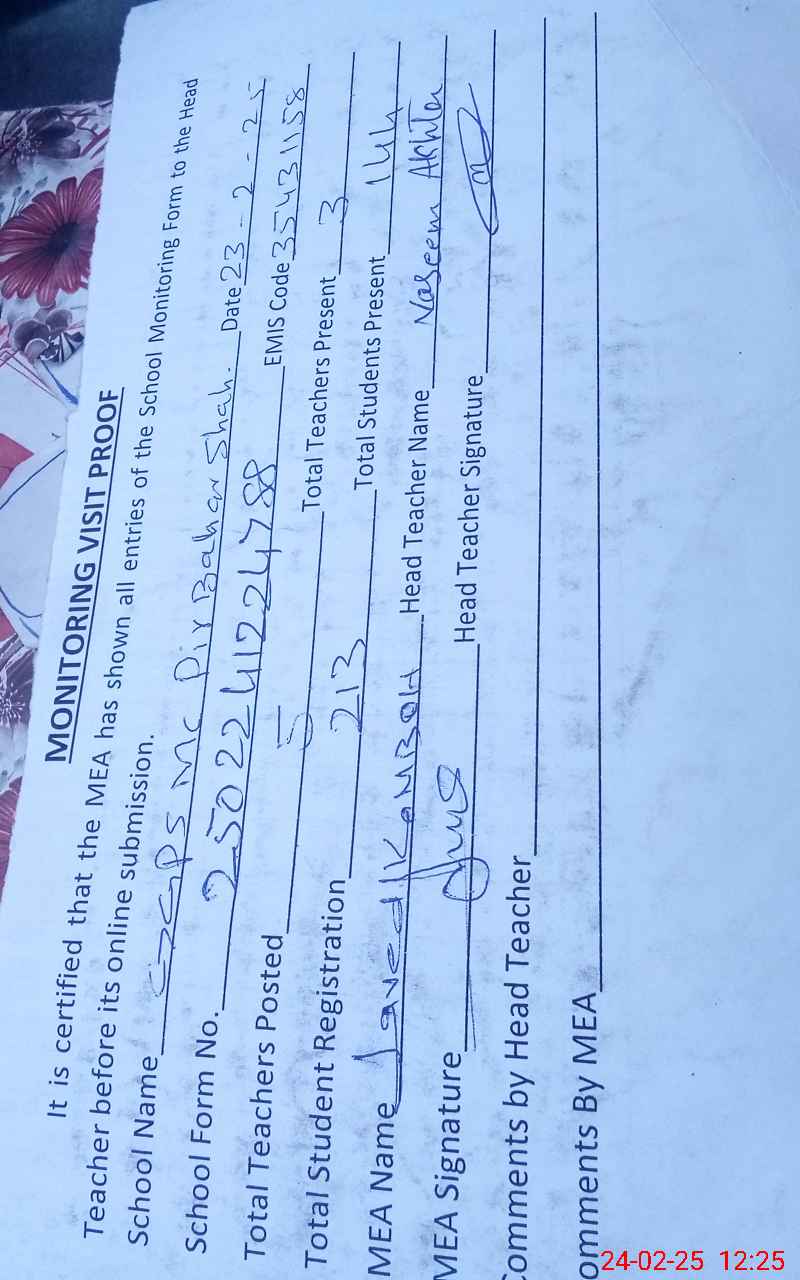 MONITORING VISIT PROOF
It is certified that the MEA has shown all entries of the School Monitoring Form to the Head
Teacher before its online submission.
School Name GGPS MC Pir Bahar Shah. Date 23-2-25
School Form No. 2502241224788 EMIS Code 35431158
Total Teachers Posted 5 Total Teachers Present 3
Total Student Registration 213 Total Students Present 144
MEA Name Javed KAMBOH Head Teacher Name Naseem Akhter
MEA Signature Head Teacher Signature
Comments by Head Teacher
omments By MEA
24-02-25 12:25